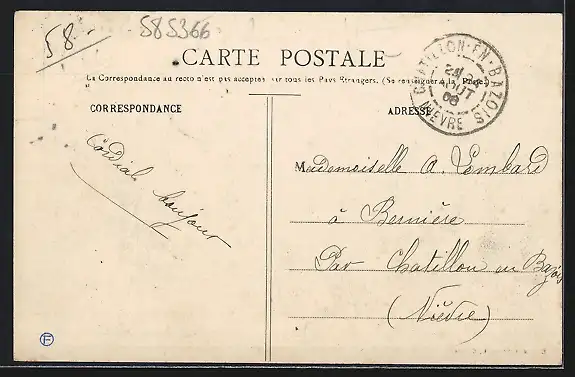 58-
585366
CARTE POSTALE
La Correspondance au recto n'est pas acceptée sur tous les Pays Étrangers. (Se renseigner à la Poste)
CORRESPONDANCE
ADRESSE
CHATILLON-EN-BAZOIS
24
AOUT
08
NIÈVRE
Cordial bonjour
Mademoiselle A. Lombard
à Bernière
Par Chatillon en Bazois
(Nièvre)
F